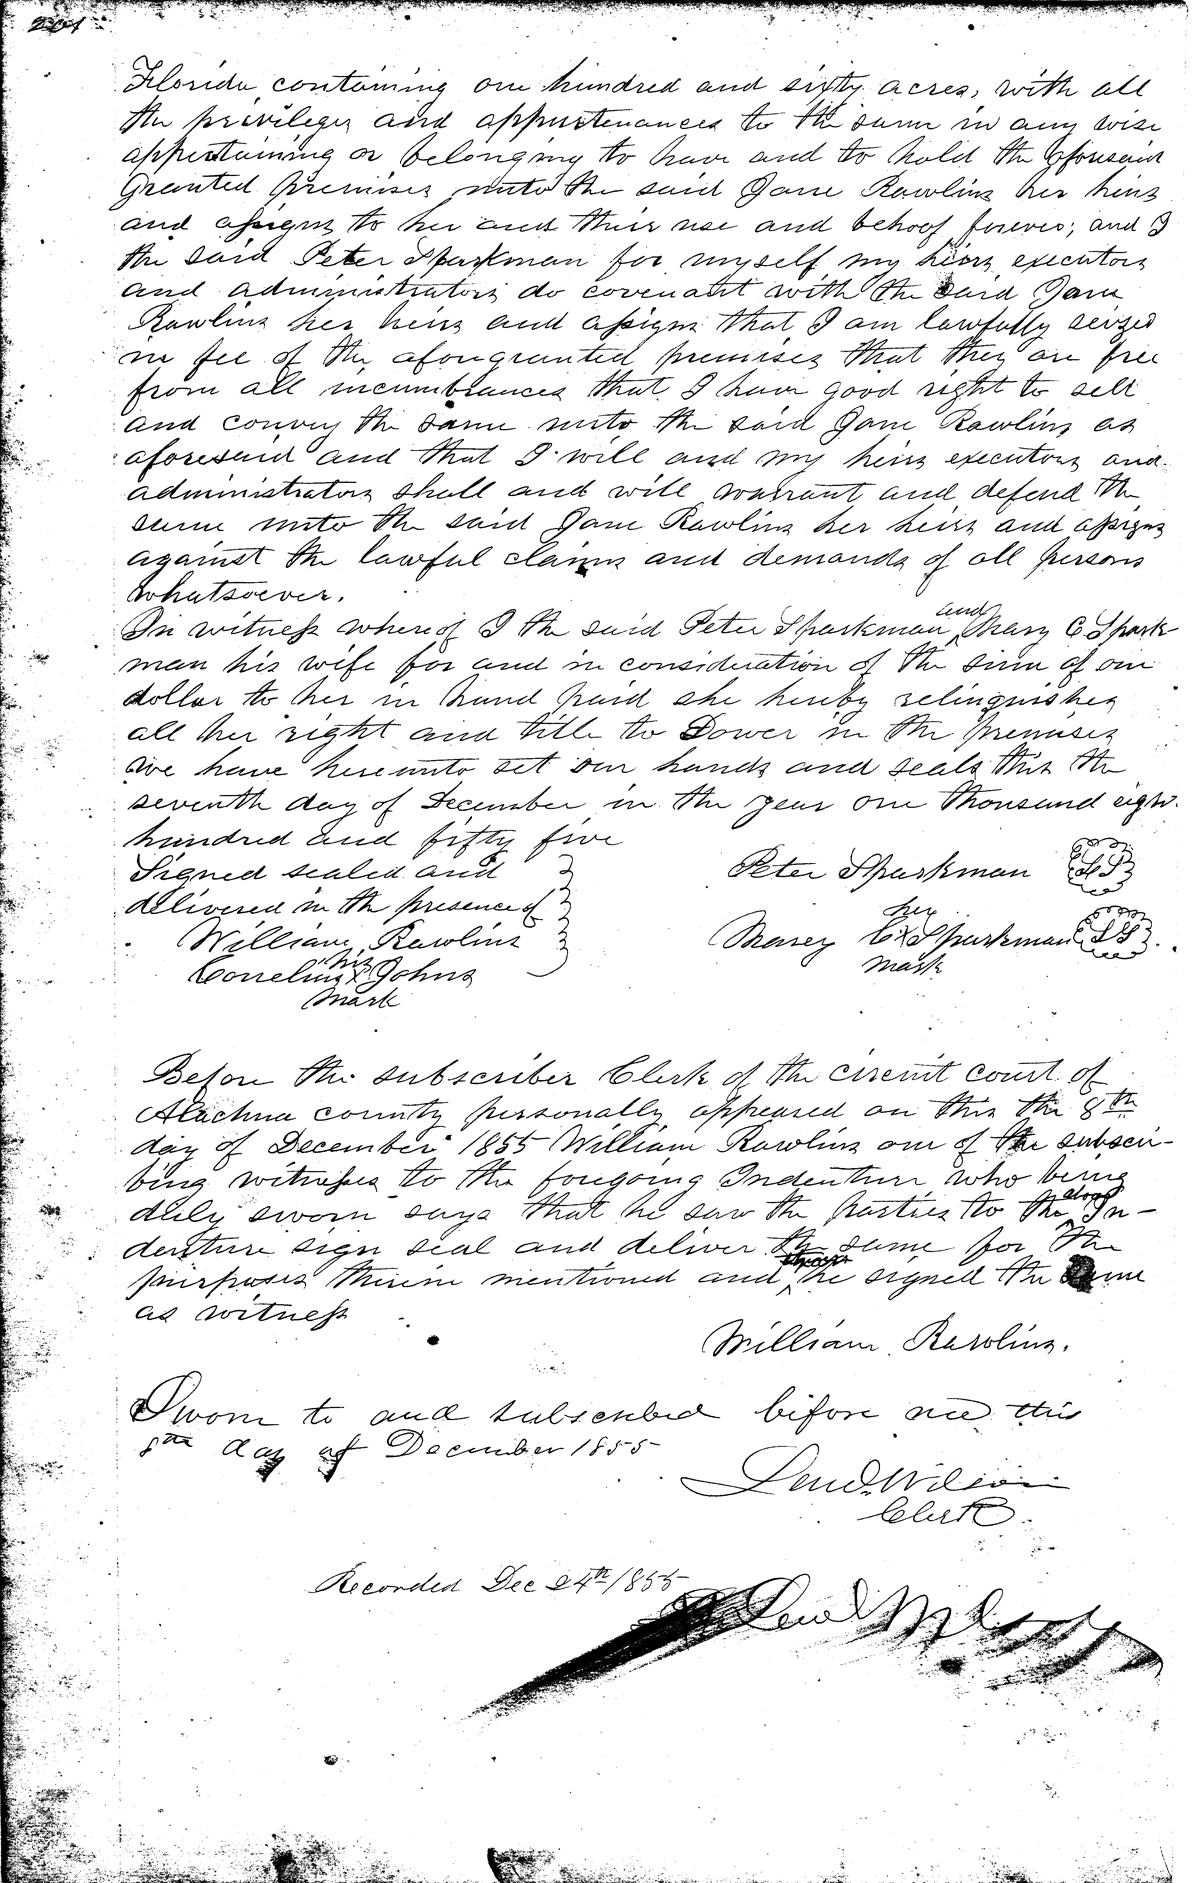 Florida containing one hundred and sixty acres, with all
the privileges and appurtenances to the same in any wise
appertaining or belonging to have and to hold the aforesaid
Granted premises unto the said Jane Rawlins her heirs
and assigns to her and their use and behoof forever; and I
the said Peter Sparkman for myself my heirs executors
and administrators do covenant with the said Jane
Rawlins her heirs and assigns that I am lawfully seized
in fee of the aforegranted premises that they are free
from all incumbrances that I have good right to sell
and convey the same unto the said Jane Rawlins as
aforesaid and that I will and my heirs executors and
administrators shall and will warrant and defend the
same unto the said Jane Rawlins her heirs and assigns
against the lawful claims and demands of all persons
whatsoever.
In witness whereof I the said Peter Sparkman and Mary C Spark
man his wife for and in consideration of the sum of one
dollar to her in hand paid she hereby relinquishes
all her right and title to Dower in the premises
we have hereunto set our hands and seals this the
seventh day of December in the year one thousand eight
hundred and fifty five
Signed sealed and
delivered in the presence of
William Rawlins
Cornelius his x Johns
mark
Peter Sparkman LS
her
Marey C x Sparkman LS
mark
Before the subscriber Clerk of the circuit court of
Alachua county personally appeared on this the 8th
day of December 1855 William Rawlins one of the subscri-
bing witnesses to the foregoing Indenture who being
duly sworn says that he saw the parties to the above In-
denture sign seal and deliver the same for the
purposes therein mentioned and he signed the same
as witness
William Rawlins.
Sworn to and subscribed before me this
8th day of December 1855
Lewd. Wilson
Clerk
Recorded Dec 24th / 1855